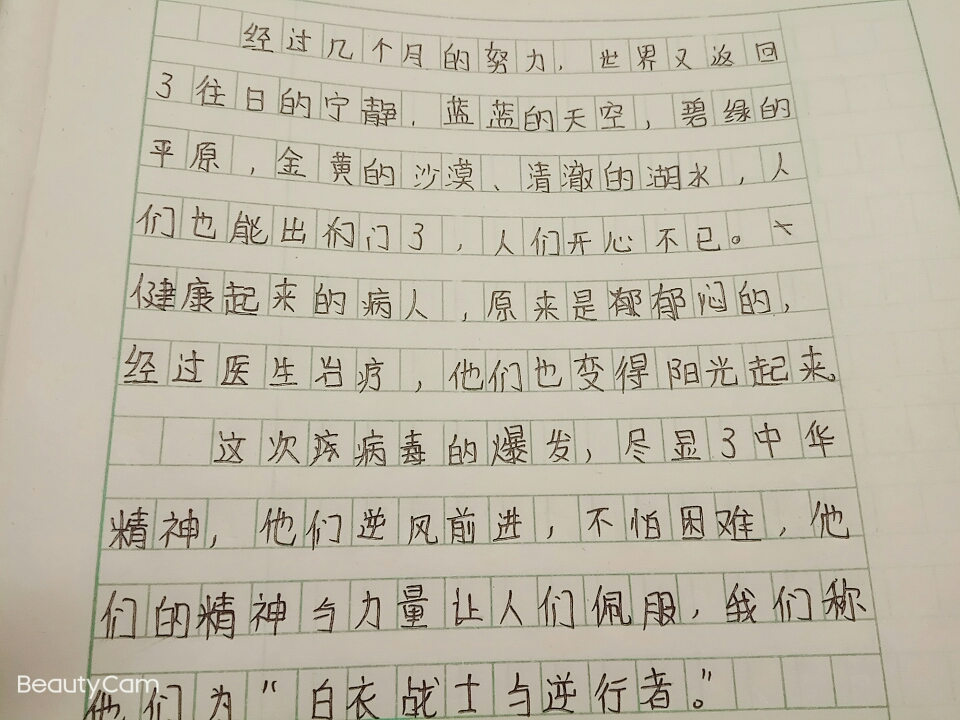 经过几个月的努力，世界又返回
了往日的宁静，蓝蓝的天空，碧绿的
平原，金黄的沙漠、清澈的湖水，人
们也能出门了，人们开心不已。不
健康起来的病人，原来是郁郁闷的，
经过医生治疗，他们也变得阳光起来。
这次病毒的爆发，尽显了中华
精神，他们逆风前进，不怕困难，他
们的精神与力量让人们佩服，我们称
他们为“白衣战士与逆行者。”
BeautyCam